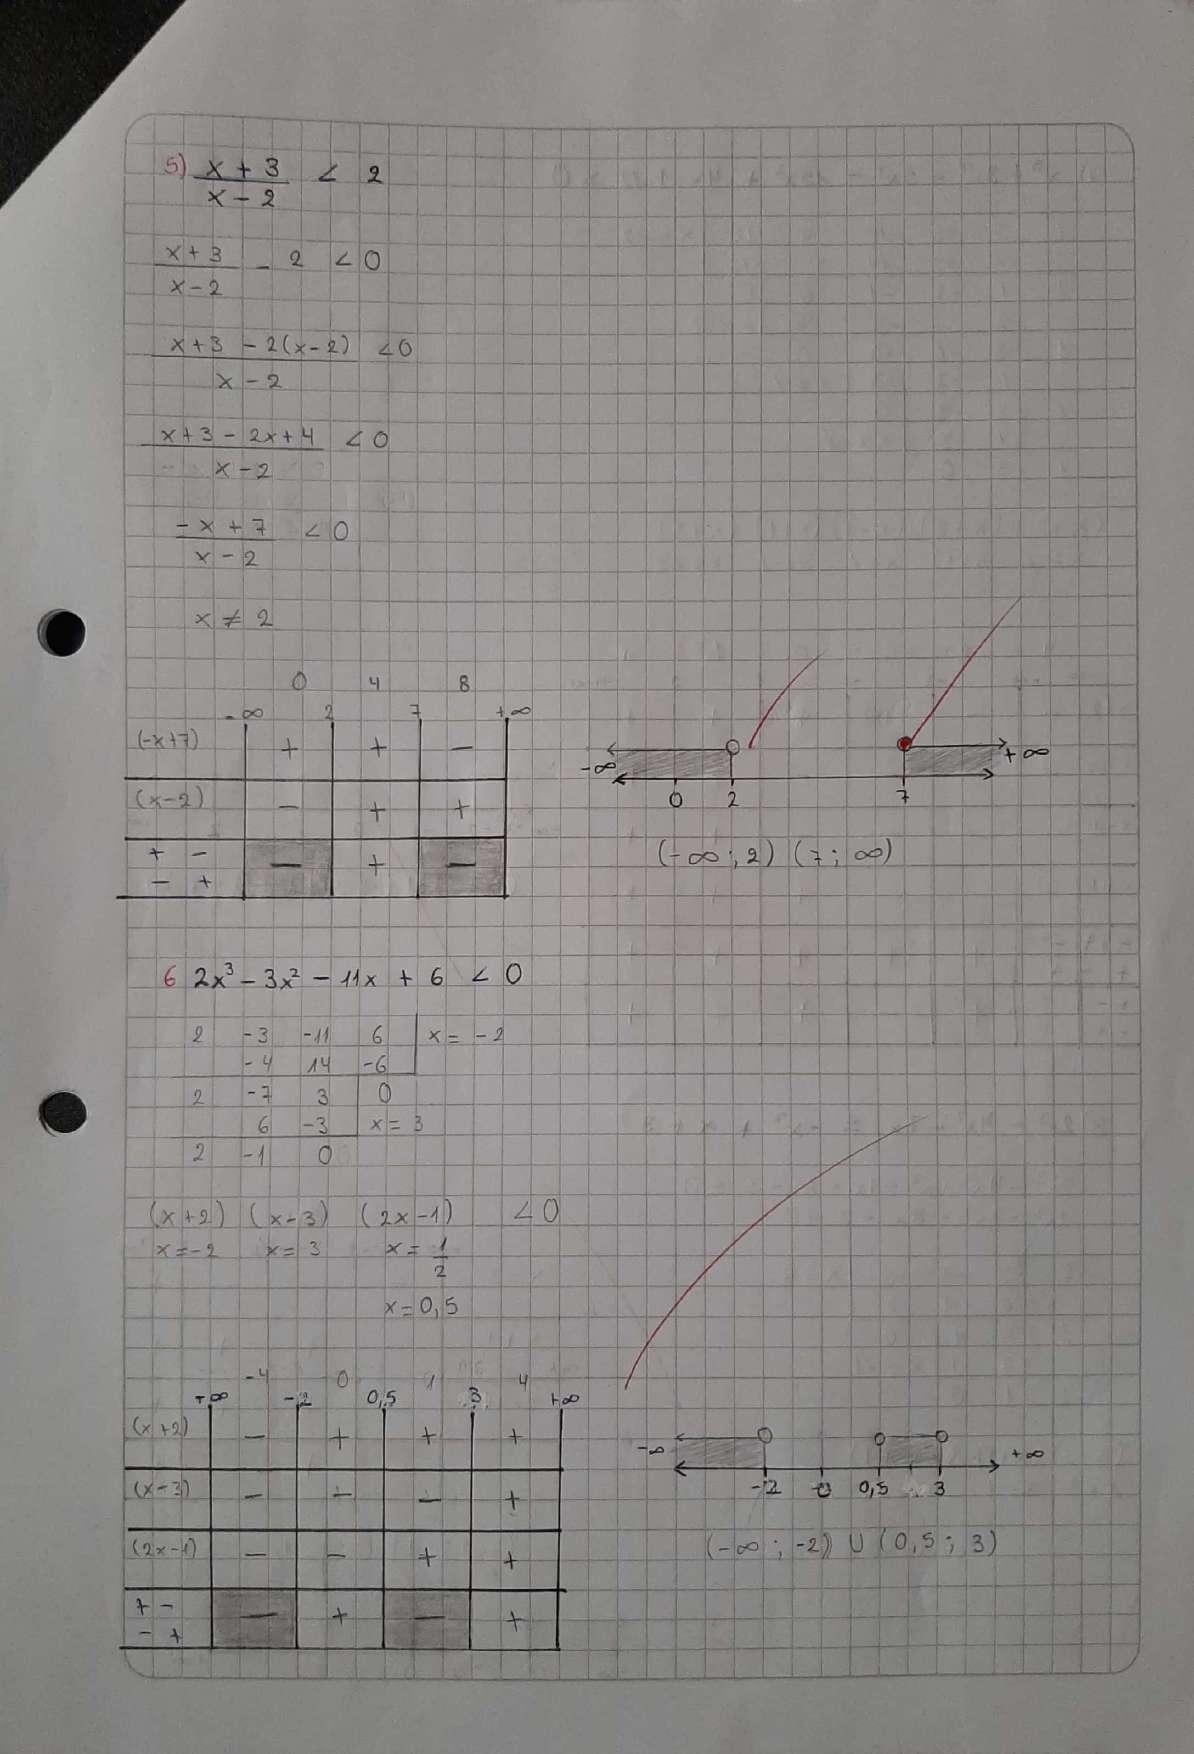 5) x + 3 < 2
x - 2
x + 3 - 2 < 0
x - 2
x+3 - 2(x-2) < 0
x - 2
x+3 - 2x+4 < 0
x - 2
- x + 7 < 0
x - 2
x ≠ 2
0 4 8
-∞ 2 7 +∞
(-x+7) + + -
(x-2) - + +
+ - - + -
- +
-∞ +∞
0 2 7
(-∞ ; 2) (7 ; ∞)
6 2x³ - 3x² - 11x + 6 < 0
2 -3 -11 6 x = -2
-4 14 -6
2 -7 3 0
6 -3 x = 3
2 -1 0
(x+2) (x-3) (2x-1) < 0
x=-2 x= 3 x= 1
2
x=0,5
-4 0 1 4
+∞ -2 0,5 3 +∞
(x+2) - + + +
(x-3) - - - +
(2x-1) - - + +
+ - - + - +
- +
-∞ +∞
-2 0 0,5 3
(-∞ ; -2) ∪ (0,5 ; 3)